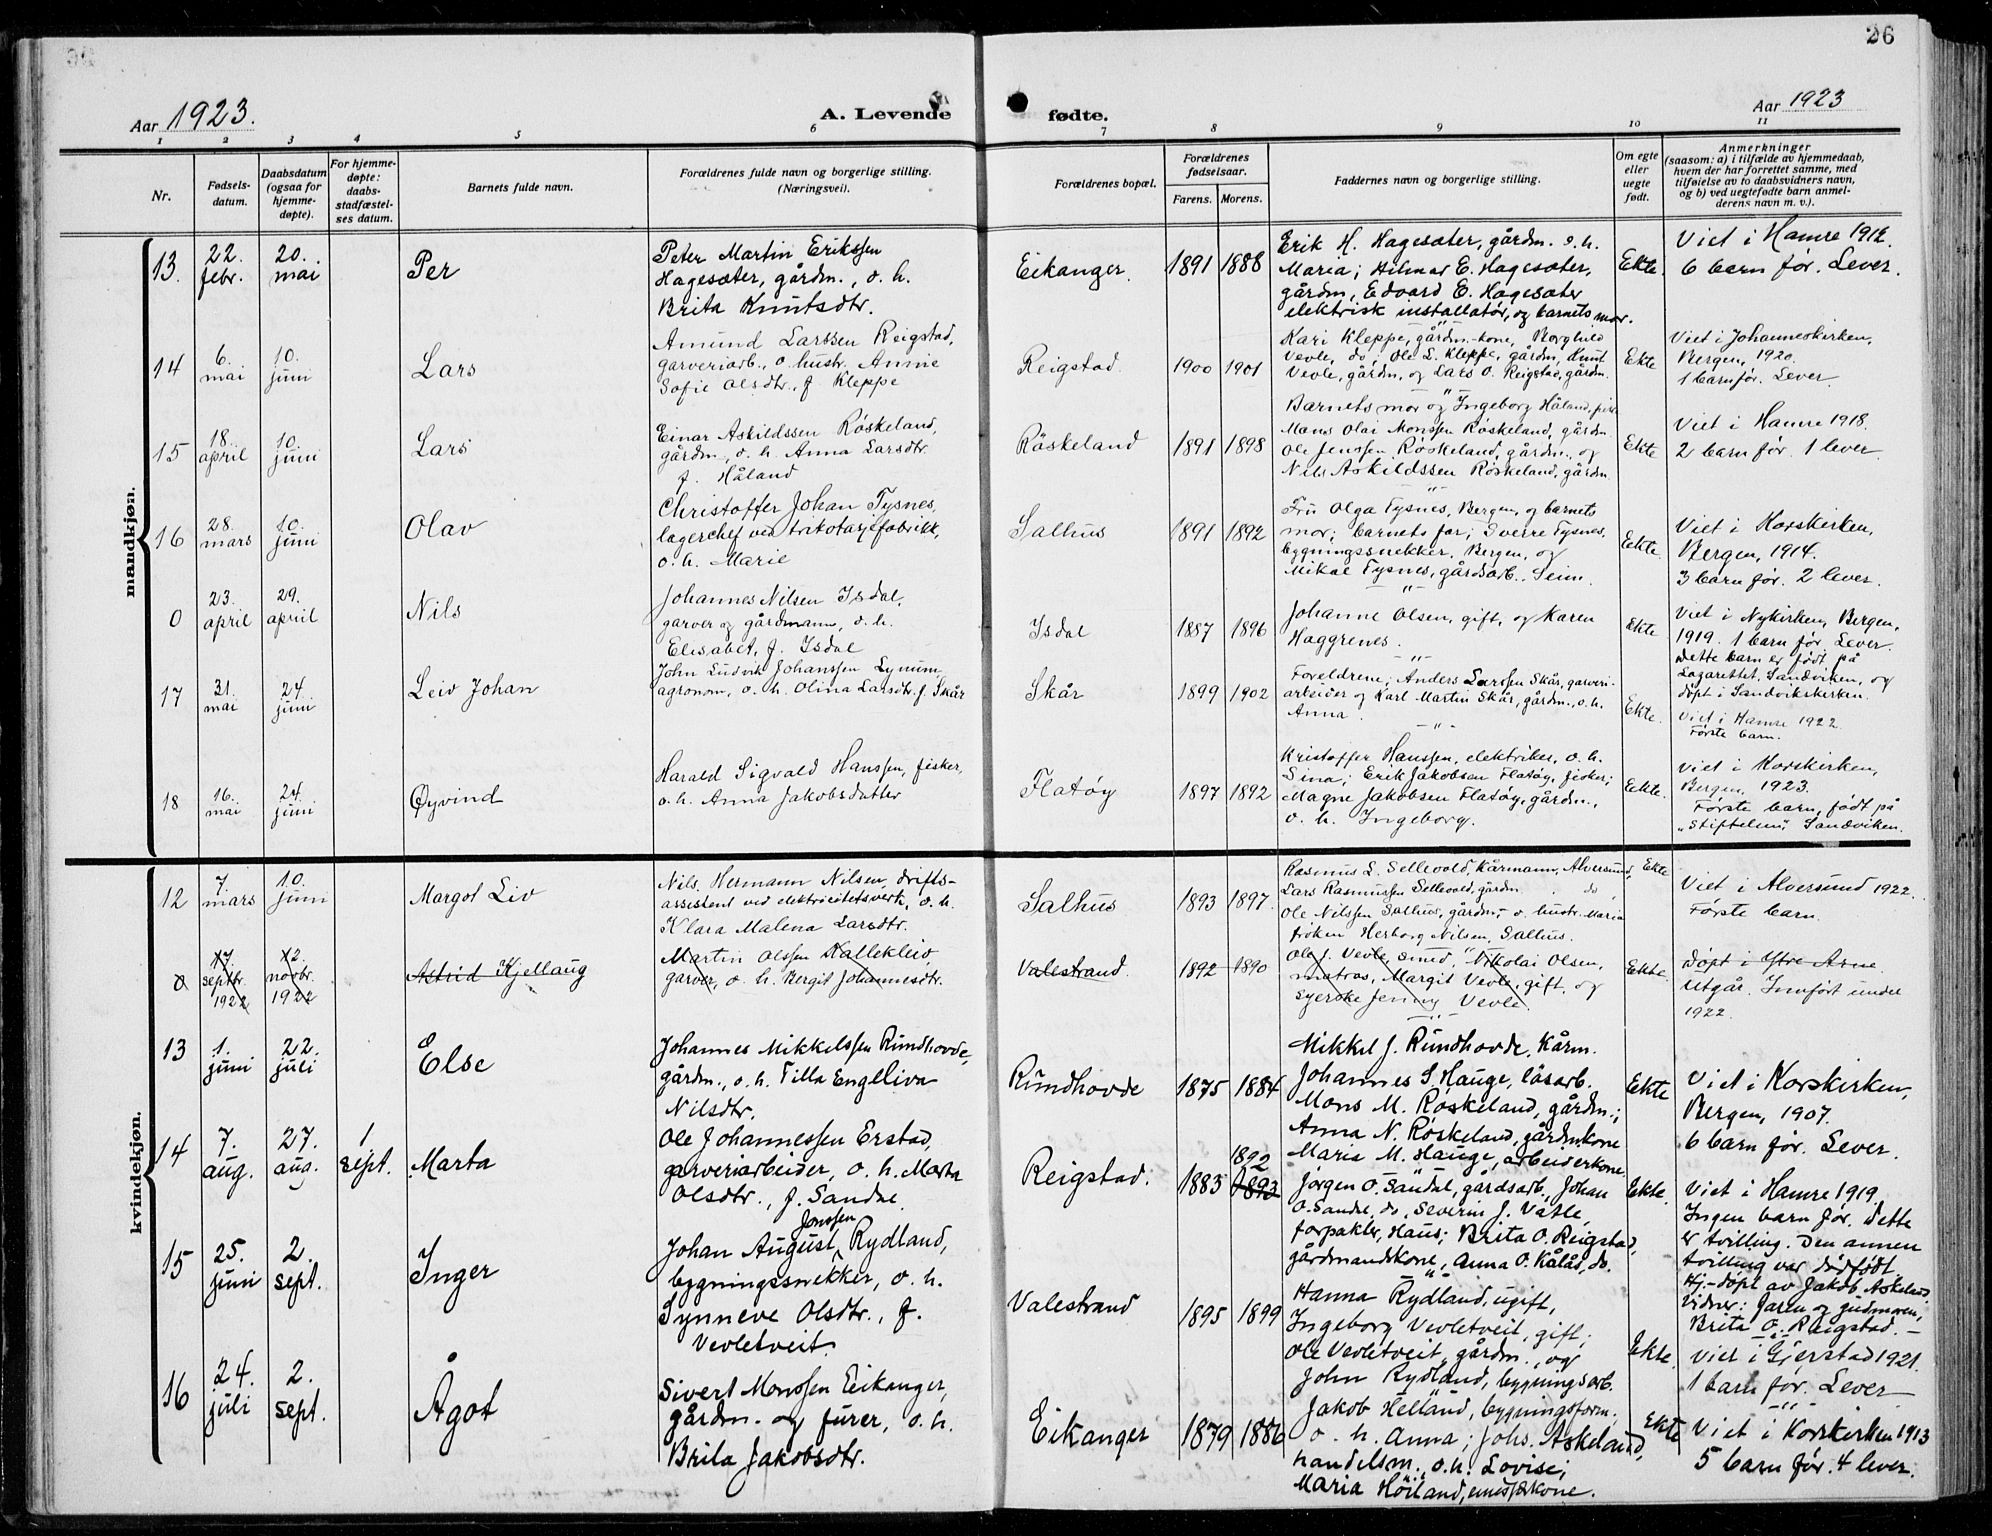 26
Aar 1923.
A. Levende
fødte.
Aar 1923
1 2 3 4 5 6 7 8 9 10 11
Nr.
Fødsels-
datum.
Daabsdatum
(ogsaa for
hjemme-
døpte).
For hjemme-
døpte:
daabs-
stadfæstel-
ses datum.
Barnets fulde navn.
Forældrenes fulde navn og borgerlige stilling.
(Næringsvei).
Forældrenes bopæl.
Forældrenes
fødselsaar.
Farens. Morens.
Faddernes navn og borgerlige stilling.
Om egte
eller
uegte
født.
Anmerkninger
(saasom: a) i tilfælde av hjemmedaab,
hvem der har forrettet samme, med
tilføielse av to daabsvidners navn,
og b) ved uegtefødte barn anmel-
derens navn m. v.).
mandkjøn.
13.
22.
febr.
20.
mai
Per
Peter Martin Erikssen
Hagesæter, gårdm., o. h.
Brita Knutsdtr.
Eikanger.
1891 1888
Erik H. Hagesæter, gårdm. o. h.
Maria; Hilmar E. Hagesæter,
gårdm, Edvard E. Hagesæter
elektrisk installatør, og barnets mor.
Ekte.
Viet i Hamre 1912.
6 barn før. Lever.
14
6.
mai
10.
juni
Lars
Amund Larssen Reigstad,
garveriarb., o. hustr. Annie
Sofie Olsdtr., f Kleppe
Reigstad.
1900 1901
Kari Kleppe, gårdm.-kone, Borghild
Vevle, do, Ole L. Kleppe, gårdm, Knut
Vevle, gårdm, og Lars O. Reigstad, gårdm.
Ekte
Viet i Johanneskirken,
Bergen, 1920.
1 barn før. Lever.
15
18.
april
10.
juni
Lars
Einar Askildssen Røskeland,
gårdm, o. h. Anna Larsdtr
f. Håland
Røskeland
1891 1898
Barnets mor og Ingeborg Håland,
Mons Olai Monssen Røskeland, gårdm
Ole Jenssen Røskeland, gårdm., og
Nils Askildssen Røskeland, gårdm
Ekte
Viet i Hamre 1918.
2 barn før. 1 lever
16
28.
mars
10.
juni
Olav
Christoffer Johan Tysnes,
lagerchef ved trikotagefabrikk,
o. h. Marie
Salhus
1891 1892
Fru Olga Tysnes, Bergen, og barnets
mor; barnets far; Sverre Tysnes,
bygningssnekker, Bergen, og
Mikal Tysnes, gårdsarb., Seim.
Ekte.
Viet i Korskirken,
Bergen, 1914.
3 barn før. 2 lever.
0
23.
april
29.
april
Nils
Johannes Nilsen Isdal,
garver og gårdmann, o. h.
Elisabet, f. Isdal
Isdal
1887 1896
Johanne Olsen, gift, og Karen
Haggrenes.
Ekte
Viet i Nykirken, Bergen,
1919. 1 barn før. Lever.
Dette barn er født på
Lazarettet, Sandviken, og
døpt i Sandvikskirken.
17
31.
mai
24.
juni
Leiv Johan
John Ludvik Johanssen Lynum,
agronom, o. h. Olina Larsdtr. f. Skår
Skår
1899 1902
Foreldrene; Anders Larssen Skår, garveri-
arbeider og Karl Martin Skår, gårdm., o. h.
Anna.
Ekte.
Viet i Hamre 1922.
Første barn.
18
16.
mai
24.
juni
Øyvind
Harald Sigvald Hanssen, fisker,
o. h. Anna Jakobsdatter
Flatøy
1897 1892
Kristoffer Hanssen, elektriker, o. h.
Sina; Erik Jakobsen Flatøy, fisker;
Magne Jakobsen Flatøy, gårdm.,
o. h. Ingeborg.
Ekte.
Viet i Korskirken,
Bergen, 1923.
Første barn, født på
„Stiftelsen“, Sandviken.
kvindekjøn.
12
7.
mars
10.
juni
Margot Liv
Nils Hermann Nilsen, drifts-
assistent ved elektricitetsverk, o. h.
Klara Malena Larsdtr.
Salhus
1893 1897.
Rasmus L. Sellevold, Kårmann, Alversund,
Lars Rasmussen Sellevold, gårdm. do
Ole Nilssen Salhus, gårdm, o. hustr. Maria
frøken Herborg Nilsen, Salhus.
Ekte
Viet i Alversund 1922.
Første barn.
0
17.
septbr.
1922
12.
novbr.
1922
Astrid Kjellaug
Martin Olssen Hallekleiv,
garver, o. h. Bergit Johannesdtr.
Valestrand.
1892 1890
Ole J. Vevle, smed, Nikolai Olsen,
matros, Margit Vevle, gift, og
syerske Jenny Vevle.
Ekte.
Døpt i Ytre Arne.
Utgår. Innført under
1922.
13
1.
juni
22.
juli
Else
Johannes Mikkelssen Rundhovde,
gårdm., o. h. Tilla Engeliva
Nilsdtr.
Rundhovde
1875 1884
Mikkel J. Rundhovde, Kårm.
Johannes S. Hauge, løsarb.
Mons M. Røskeland, gårdm.;
Anna N. Røskeland, gårdm.kone
Maria M. Hauge, arbeiderkone
Ekte
Viet i Korskirken,
Bergen, 1907.
6 barn før. Lever.
14
7.
aug.
27.
aug.
1
sept.
Marta
Ole Johannessen Erstad,
garveriarbeider, o. h. Marta
Olsdtr., f. Sandal.
Reigstad.
1883 1892
1893
Jørgen O. Sandal, gårdsarb., Johan
O. Sandal, do, Severin J. Vatle,
forpakter, Haus; Brita O. Reigstad,
gårdmandskone, Anna O. Kålås, do.
Ekte.
Viet i Hamre 1919.
Ingen barn før. Dette
er tvilling. Den annen
tvilling var dødfødt.
Hj.-døpt av Jakob Askeland.
Vidner: Faren og gudmoren,
Brita O. Reigstad.
15
25.
juni
2.
sept.
Inger
Jonssen
Johan August Rydland,
bygningssnekker, o. h.
Synneve Olsdtr., f.
Vevletveit.
Valestrand
1895 1899
Hanna Rydland, ugift,
Ingeborg Vevletveit, gift;
Ole Vevletveit, gårdm., og
John Rydland, bygningsarb.
Ekte.
Viet i Gjerstad 1921.
1 barn før. Lever
16
24.
juli
2.
sept.
Ågot
Sivert Monssen Eikanger,
gårdm. og furer, o. h.
Brita Jakobsdtr.
Eikanger
1879 1886
Jakob Helland, bygningsform.
o. h. Anna; Johs. Askeland,
handelsm., o. h. Lovise;
Maria Høiland,
Ekte
Viet i Korskirken 1913
5 barn før. 4 lever.